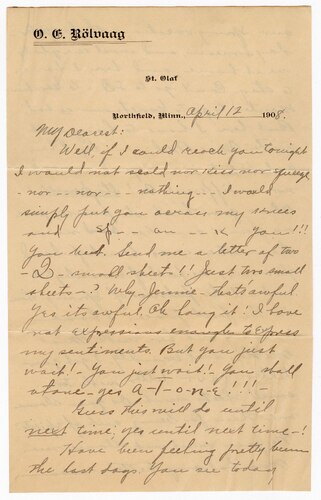 O. E. Rölvaag
St. Olaf
Northfield, Minn., April 12 1908.
My Dearest:
Well, if I could reach you tonight
I would not scold nor kiss nor
- nor - - nor - - - nothing - - . I would
simply put you across my knees
and - sp - - an - - k you!!!
You bet. Send me a letter of two
- 2 - small sheets!! Just two small
sheets - ? Why Jennie - thats awful
Yes its awful. Oh hang it! I have
not expressions enough to express
my sentiments. But you just
wait! - You just wait! You shall
atone - yes a-t-o-n-e!!!! -
Guess this will do until
next time, yes until next time - !
Have been feeling pretty bum
the last days. You see today